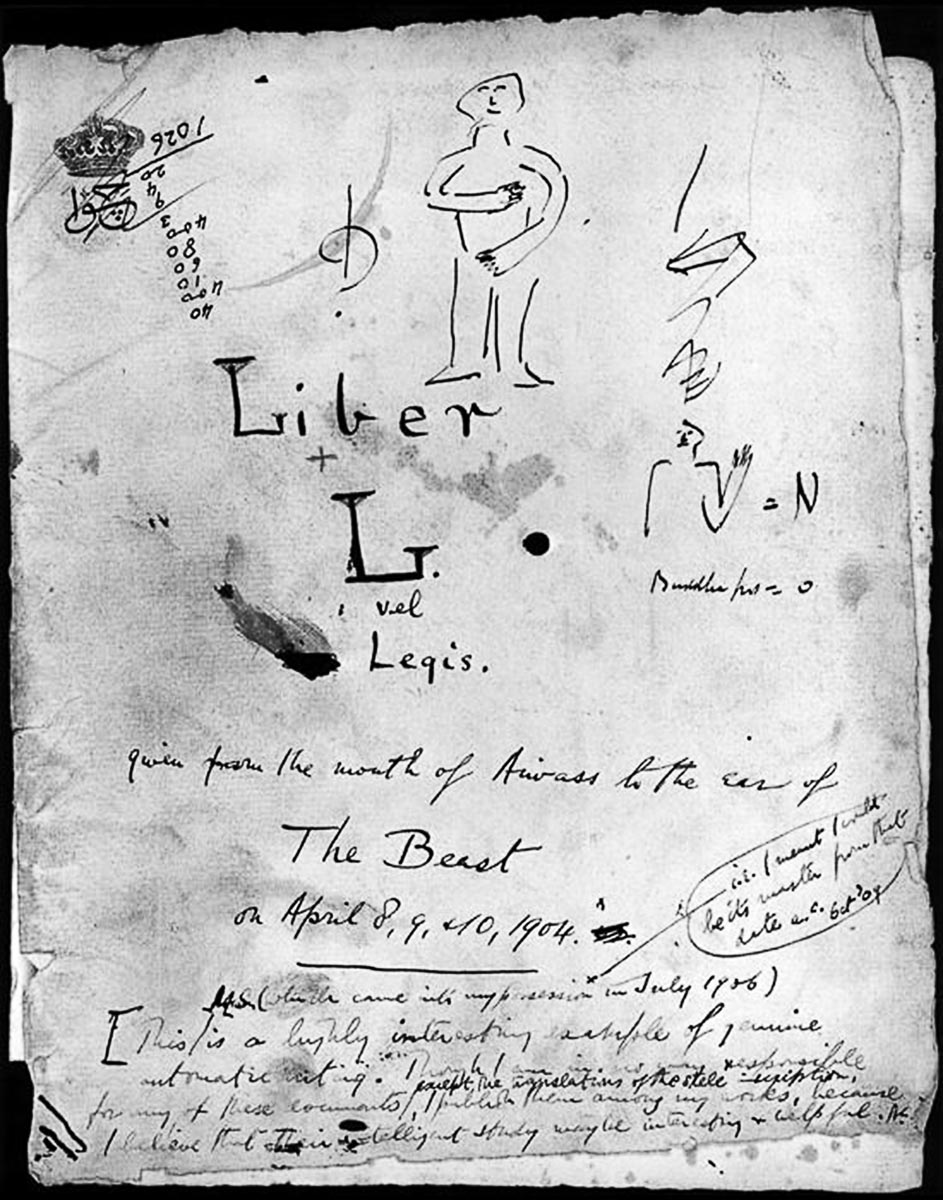 1026
20
4
9
3
400
80
60
10
400
40
Liber
+
L.
vel
Legis.
= N
Buddha = 0
given from the mouth of Aiwass to the ear of
The Beast
on April 8, 9, & 10, 1904.
i.e. I meant I would
be its master from that
date a.c. Oct '09
MS. (which came into my possession in July 1906)
[This is a highly interesting example of genuine
automatic writing. Though I am in no way responsible
except the translations of the stele inscription,
for any of these documents, I publish them among my works, because
I believe that their intelligent study may be interesting & helpful.